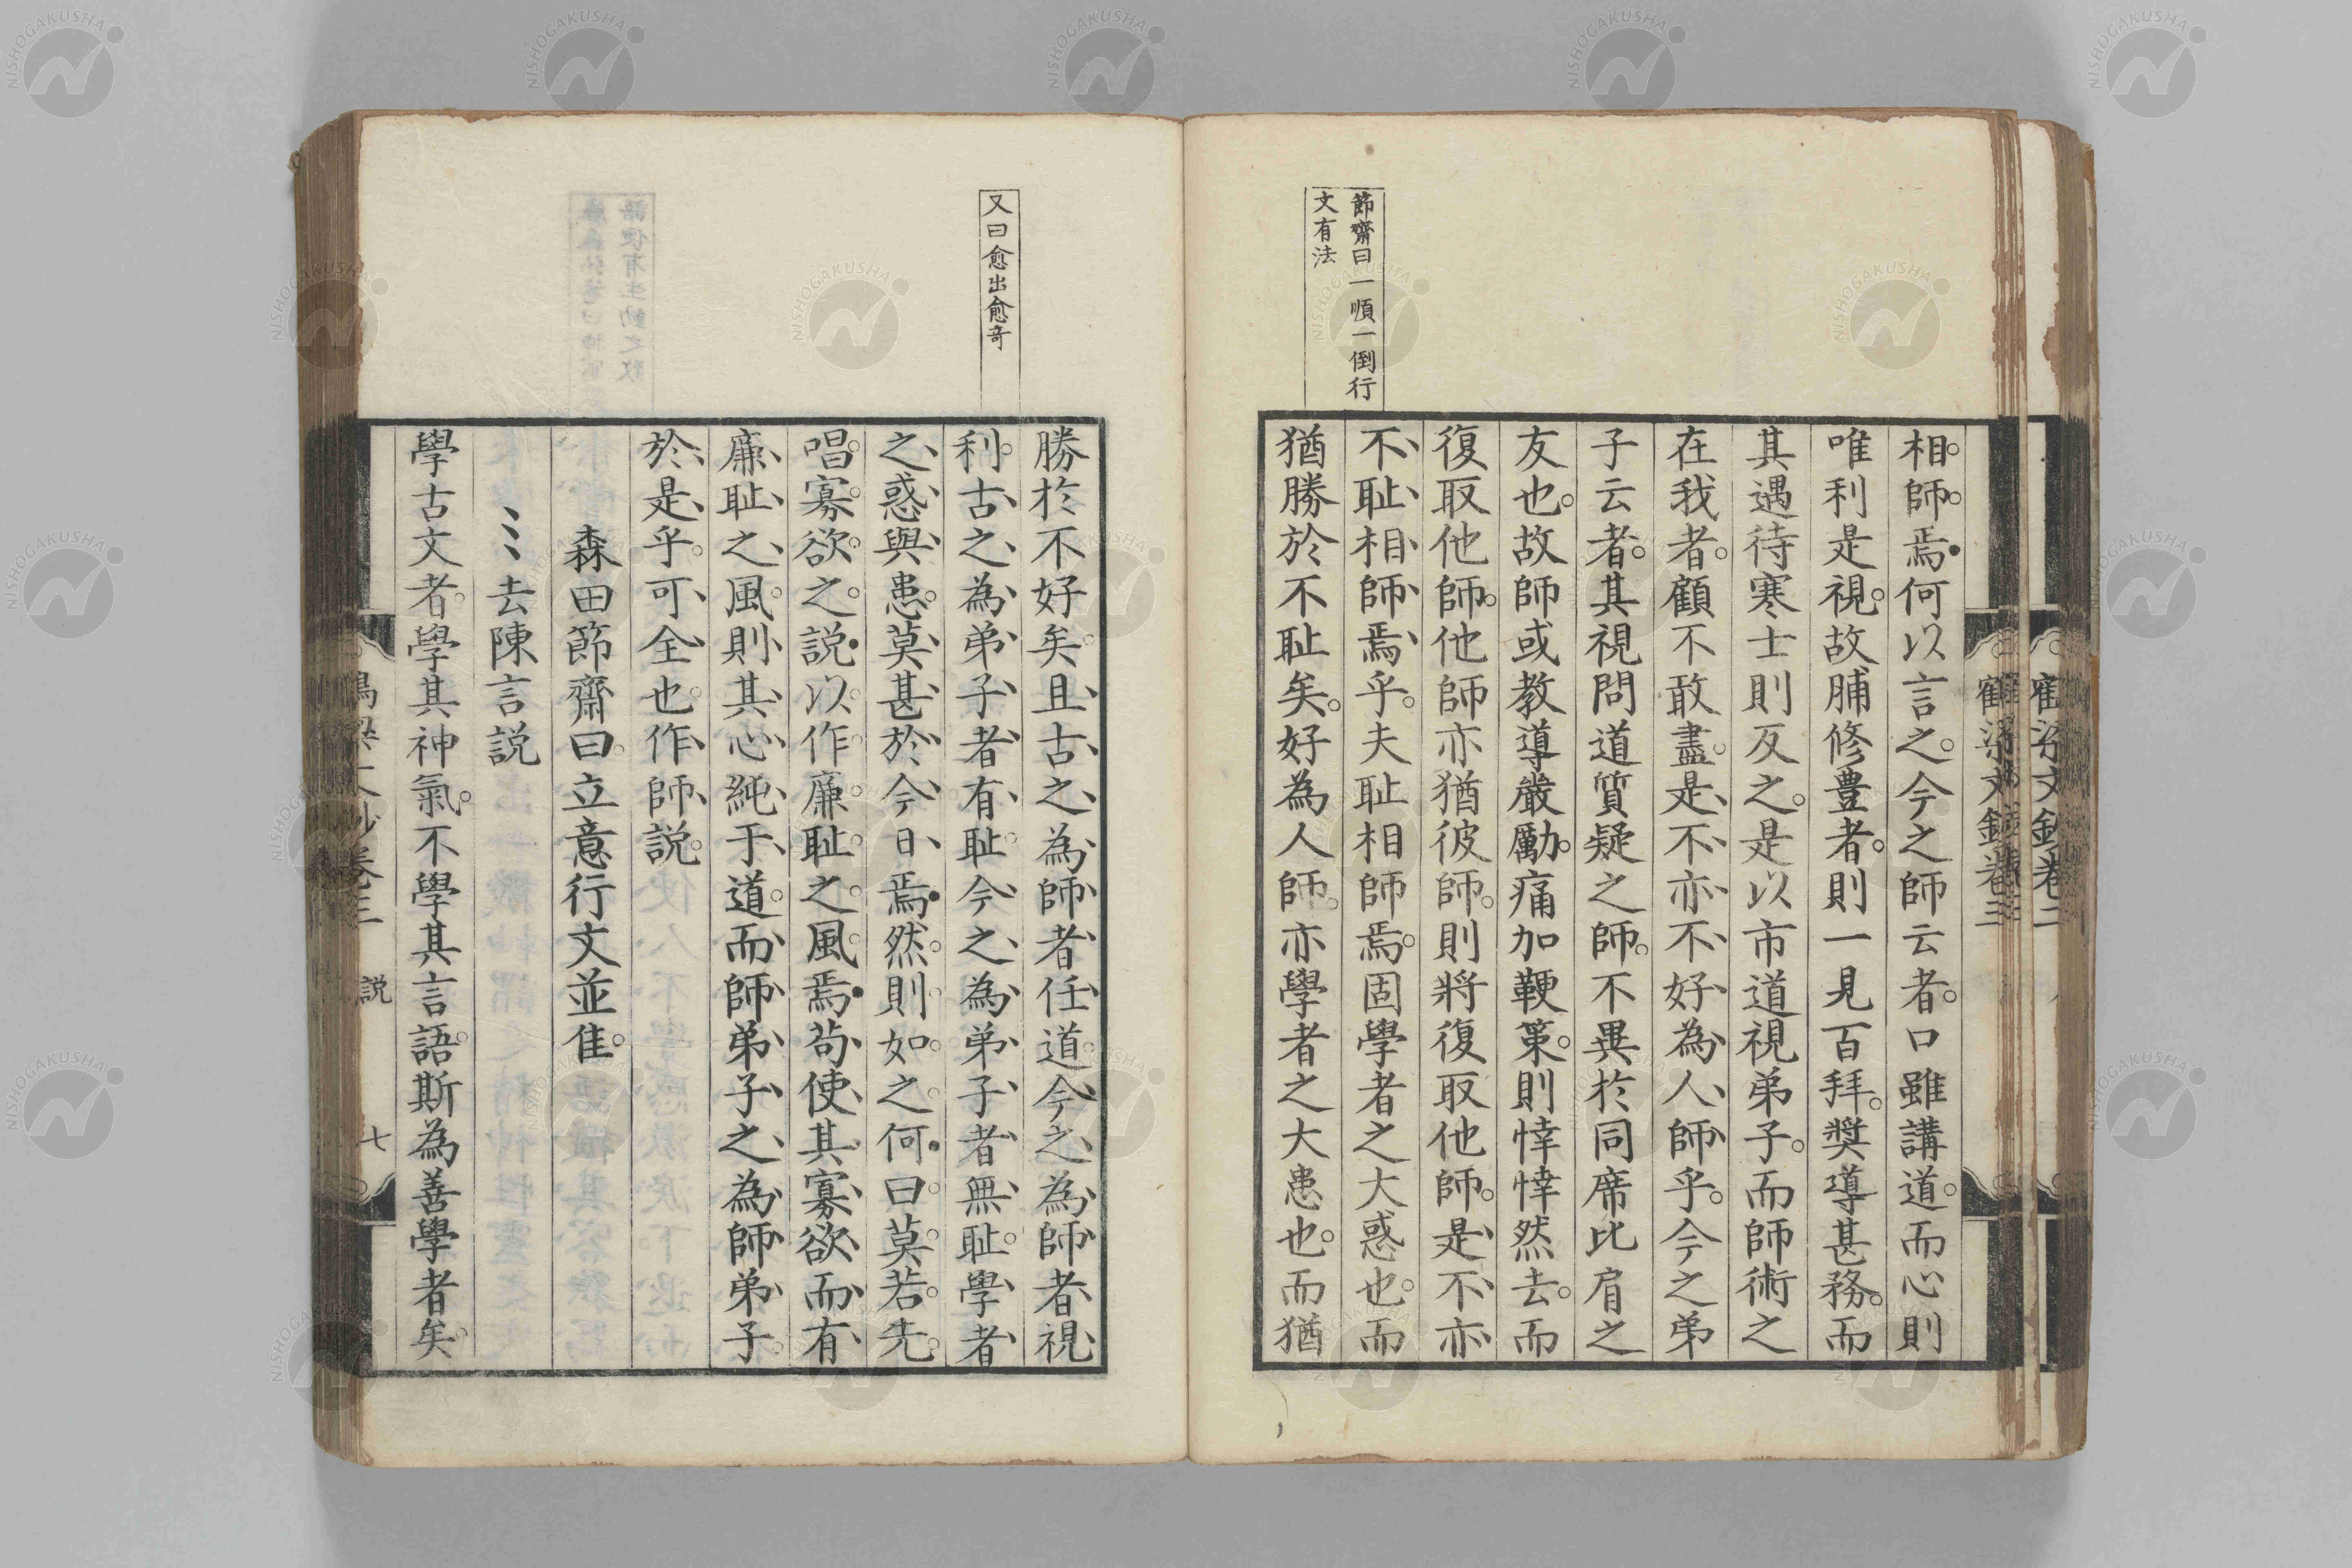 節齋曰一順一倒行
文有法
相師焉何以言之今之師云者口雖講道而心則
唯利是視故脯修豊者則一見百拜奬導甚務而
其遇待寒士則反之是以市道視弟子而師術之
在我者顧不敢盡是不亦不好為人師乎今之弟
子云者其視問道質疑之師不異於同席比肩之
友也故師或教導嚴勵痛加鞭䇿則悻悻然去而
復取他師他師亦猶彼師則將復取他師是不亦
不耻相師焉乎夫耻相師焉固學者之大惑也而
猶勝於不耻矣好為人師亦學者之大患也而猶
又曰愈出愈竒
勝於不好矣且古之為師者任道今之為師者視
利古之為弟子者有耻今之為弟子者無耻學者
之惑與患莫甚於今日焉然則如之何曰莫若先
唱寡欲之說以作廉耻之風焉苟使其寡欲而有
廉耻之風則其心純于道而師弟子之為師弟子
於是乎可全也作師說
森田節齋曰立意行文並佳
去陳言説
學古文者學其神氣不學其言語斯為善學者矣
説
七
鶴梁文鈔卷三
NISHOGAKUSHA